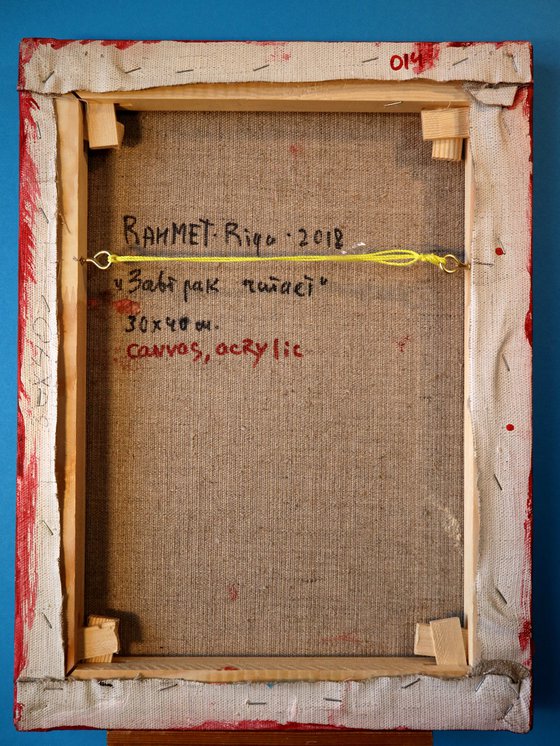 014
RAHMET · Riga · 2018
"Завтрак читает"
30x40 см.
canvas, acrylic